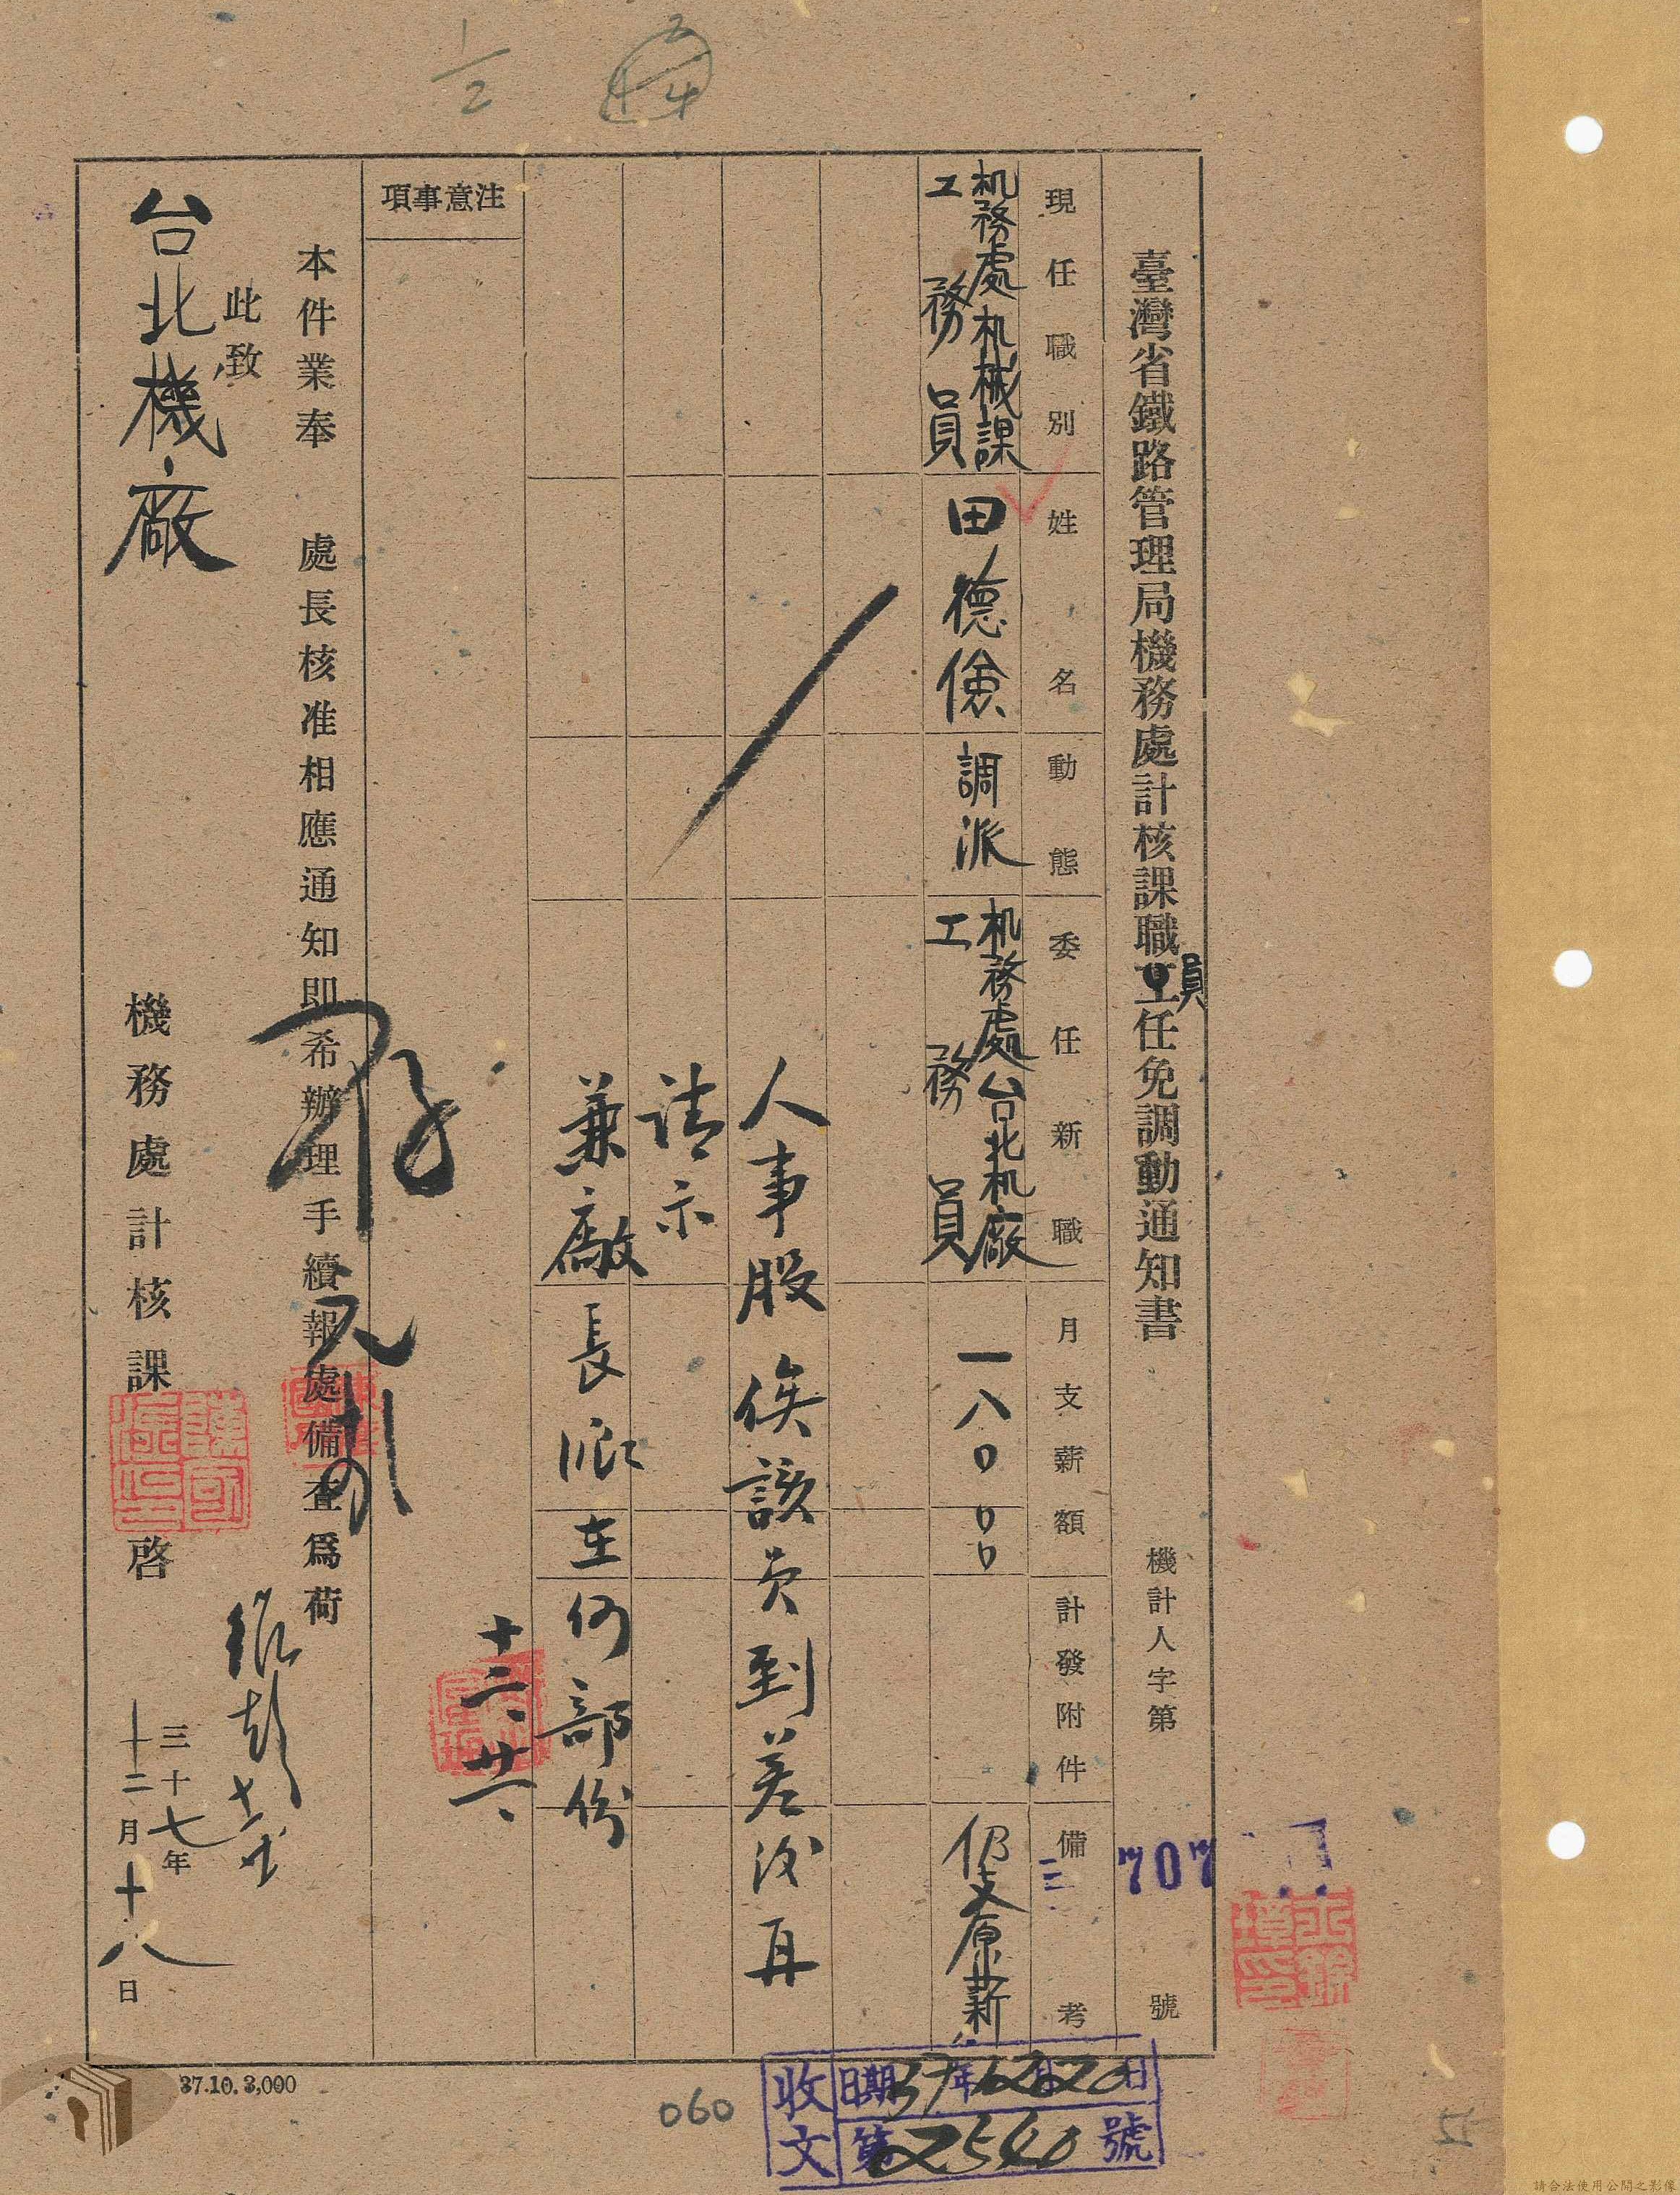 臺灣省鐵路管理局機務處計核課職員任免調動通知書
機計人字第 707 號
現任職別
姓名
動態
委任新職
月支薪額
計發附件
備考
机務處机械課
工務員
田德儉
調派
机務處台北机廠
工務員
一八0 00
仍支原薪
人事股 俟該員到差後再
請示
兼廠長派在何部份
十二、廿一、
注意事項
本件業奉 處長核准相應通知即希辦理手續報處備查爲荷
此致
台北機廠
機務處計核課 啓
三十七年
十二月十八日
37.10.3,000
060
收文
日期37年12月20日
第02540號
請合法使用公開之影像